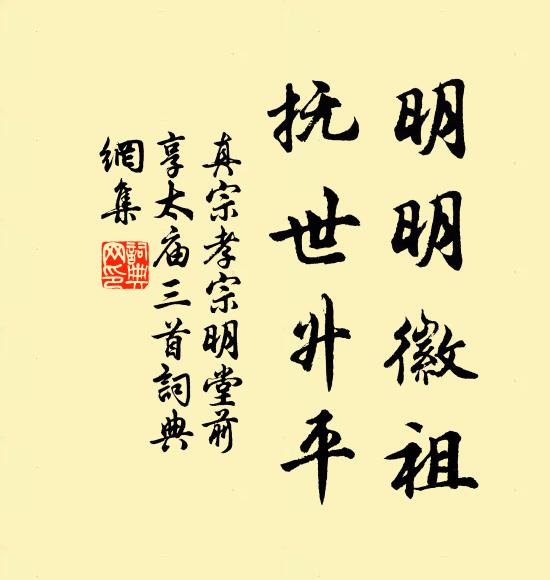 明明徽祖
抚世升平
真宗孝宗明堂前
享太庙三首詞典
網集
詞典
网